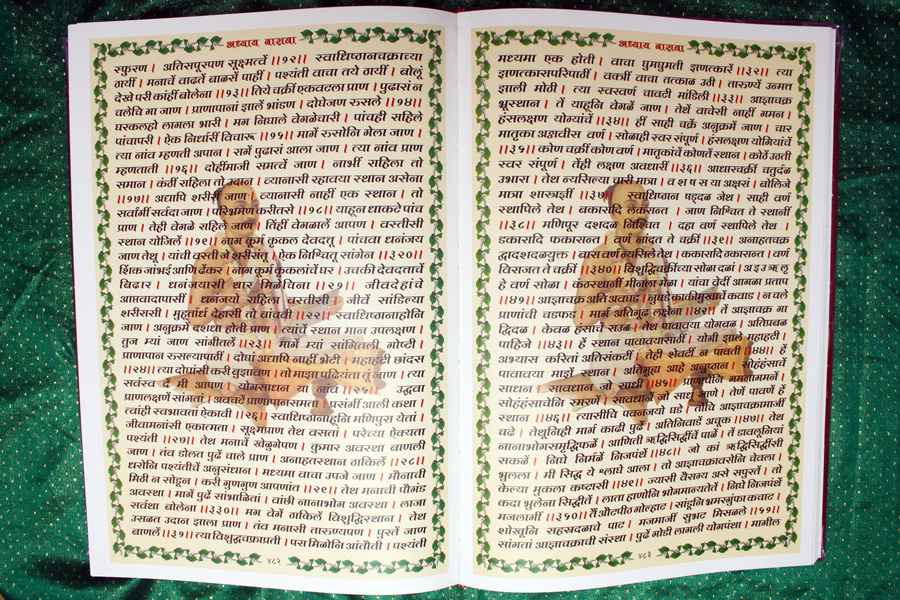 अध्याय बारावा
स्फुरण । अतिसपूरपण सूक्ष्मत्वें ॥१२॥ स्वाधिष्ठानचक्राच्या
ठायीं । मनाचें वाढतें बाळसें पाहीं । पश्यंती वाचा तये ठायीं । बोलूं
देखे परी कांहीं बोलेना ॥१३॥ तिये चक्रीं एकवटला प्राण । पुढारां न
चलेचि गा जाण । प्राणापानां झालें भांडण । दोघेजण रुसले ॥१४॥
घरकलहो लागला भारी । मग निघाले वेगळेचारी । पांचही राहिले
पांचापरी । ऐक निर्धारीं विचारू ॥१५॥ मागें रुसोनि गेला जाण ।
त्या नांव म्हणती अपान । रागें पुढारां आला जाण । त्या नांव प्राण
म्हणताती ॥१६॥ दोहींमाजी समत्वें जाण । नाभीं राहिला तो
समान । कंठीं राहिला तो उदान । व्यानासी रहावया स्थान असेना
॥१७॥ अद्यापि शरीरीं जाण । व्यानासी नाहीं एक स्थान । तो
सर्वांगीं सर्वदा जाण । परिभ्रमण करीतसे ॥१८॥ याहून धाकटे पांच
प्राण । तेही वेगळे राहिले जाण । तिंहीं वेगळालें आपण । वस्तीसी
स्थान योजिलें ॥१९॥ नाग कूर्म कृकल देवदत्तू । पांचवा धनंजय
जाण तेथू । यांची वस्ती जे शरीरांतू । ऐक निश्चितू सांगेन ॥३२०॥
शिंक जांभई आणि ढेंकर । नाग कूर्म कृकलांचें घर । उचकी देवदत्ताचें
बिढार । धनंजयासी थार मिळेचिना ॥२१॥ जीवदेहांचे
आप्तवादापासीं । धनंजयो राहिला वस्तीसी । जीवें सांडिल्या
शरीरासी । मुहूर्तार्ध देहासी तो पांचवी ॥२२॥ स्वाधिष्ठानाहोनि
जाण । अनुक्रमें दशधा होती प्राण । त्यांचें स्थान मान उपलक्षण ।
तुज म्यां जाण सांगीतलें ॥२३॥ म्यां सांगितली गोष्टी ।
प्राणापान रुसल्यापाठीं । दोघां अद्यापि नाहीं भेटी । छांदस
॥२४॥ त्या दोघांसी करी बुझावण । तो माझा पढियंता तूं जाण । त्या
सर्वस्व दें मी आपण । योगसाधन या नांव ॥२५॥ उद्धवा
प्राणलक्षणें सांगतां । अवचटें प्राणापानसमता । प्रसंगीं आली कथा ।
त्वांही स्वभावतां ऐकावी ॥२६॥ स्वाधिष्ठानाहूनि मणिपुरा येतां ।
जीवामनांसी एकात्मता । सूक्ष्मप्राण तेथ वसतां । परेच्या ऐक्यता
पश्यंती ॥२७॥ तेथ मनाचें खेळुगेपण । कुमार अवस्था बाणली
जाण । तंव डोलत पुढें चाले प्राण । अनाहतस्थान ठाकिलें ॥२८॥
धरोनि पश्यंतीचें अनुसंधान । मध्यमा वाचा उपजे जाण । मौनाची
मिठी न सोडून । करी गुणगुण आपणांत ॥२९॥ तेथ मनाची पौगंड
अवस्था । मागें पुढें सांभाळितां । वांछी नानाभोग अवस्था । लाजा
सर्वथा बोलेना ॥३३०॥ मग वेगें ठाकिलें विशुद्धिस्थान । तेथ
उसळत उदान झाला प्राण । तंव मनासी तारुण्यपण । पुरतें जाण
बाणलें ॥३१॥ त्या विशुद्धचक्राप्रती । परा मिळोनि आंतौती । पश्यंती
४८२
अध्याय बारावा
मध्यमा एक होती । वाचा घुमघुमती झणत्कारें ॥३२॥ त्या
झणत्कारापरिपाठीं । चक्रीं वाचा तत्काळ उठी । तारुण्यें उन्मत
झाली मोठी । त्या स्वरवर्ण चावटी मांडिली ॥३३॥ आज्ञाचक्र
भ्रूस्थान । तें याहूनि वेगळें जाण । तेथें वाचेसी नाहीं गमन ।
हंसलक्षण योग्यांचें ॥३४॥ हीं साही चक्रें अनुक्रमें जाण । चार
मातृका अष्टचीस वर्ण । सोळाही स्वर संपूर्ण । हंसलक्षण योगियांचें
॥३५॥ कोण चक्रीं कोण वर्ण । मातृकांचें कोणतें स्थान । कोठें उठती
स्वर संपूर्ण । तेंही लक्षण अवधारीं ॥३६॥ आधारचक्रीं चतुर्दळ
उभारा । तेथ न्यासिल्या चारी मात्रा । व श ष स या अक्षरां । बोलिजे
मात्रा शास्त्रज्ञीं ॥३७॥ स्वाधिष्ठान षड्दळ जेथ । साही वर्ण
स्थापिले तेथ । बकारादि लकारान्त । जाण निश्चित ते स्थानीं
॥३८॥ मणिपूर दशदळ निश्चित । दहा वर्ण स्थापिले तेथ ।
डकारादि फकारान्त । वर्ण शोभत ते चक्रीं ॥३९॥ अनाहतचक्र
द्वादशदळयुक्त । बारा वर्ण न्यासिले तेथ । ककारादि ठकारान्त । वर्ण
विराजत ते चक्रीं ॥३४०॥ विशुद्धिचक्रींच्या सोळा दळां । अ इ उ ऋ लृ
हे वर्ण सोळा । कंठस्थानीं मीनला मेळा । यांचा वेदीं आगळा प्रताप
॥४१॥ आज्ञाचक्र अति अवघड । नुघडे काकीमुखाचें कवाड । न चले
प्राणांची चडफड । मार्ग अतिगूढ लक्षेना ॥४२॥ तें आज्ञाचक्र गा
द्विदळ । केवळ हंसाचें राउळ । तेथ पावावया योगबळ । अतिप्रबळ
पाहिजे ॥४३॥ हें स्थान पावावयासाठीं । योगी झाले महाहटी ।
अभ्यास करितां अतिसंकटीं । तेही शेवटीं न पावती ॥४४॥ हें
पावावया माझें स्थान । अतिगुह्य आहे अनुष्ठान । सोहंहंसाचें
साधन । सावधान जो साधी ॥४५॥ प्राणाचेनि गमनागमनें ।
सोहंहंसाचेनि स्मरणें । सावधान जो साधूं जाणे । तेणें पावणें हें
स्थान ॥४६॥ त्यासीचि पवनजयो घडे । तोचि आज्ञाचक्रामाजीं
चढे । तेथूनिही मार्ग काढी पुढें । अतिनिवाडें अचूक ॥४७॥ तेथ
नानाभोगसमृद्धिफळें । आणिती ऋद्धिसिद्धींचे पाळे । तें डावलूनियां
सकळें । निघे निर्मळें निजपंथें ॥४८॥ जो कां ऋद्धिसिद्धींसी
भुलला । मी सिद्ध ये श्लाघे आला । तो आज्ञाचक्रावरोनि चेवला ।
केल्या मुकला कष्टासी ॥४९॥ ज्यासी वैराग्य असे सपुरतें । तो
कदा भुलेना सिद्धीतें । लाता हाणोनि भोगमान्यतेतें । निघे निजपंथें
मजलागीं ॥३५०॥ तैं औटपीठ गोल्हाट । सांडूनि भ्रमरगुंफा कचाट ।
शोखूनि सहस्रदळाचे पाट । मजमाजीं सुभट मिसळले ॥५१॥
सांगतां आज्ञाचक्राची संस्था । पुढें गोडी लागली योगपंथा । मागील
४८३